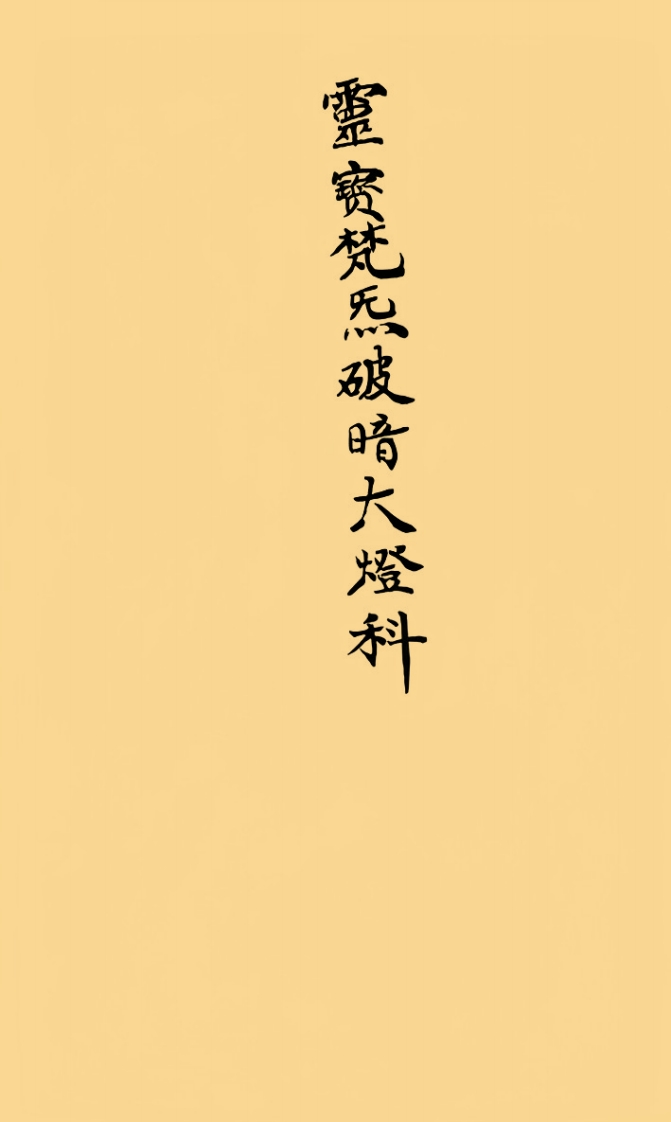 靈寳梵炁破暗大燈科